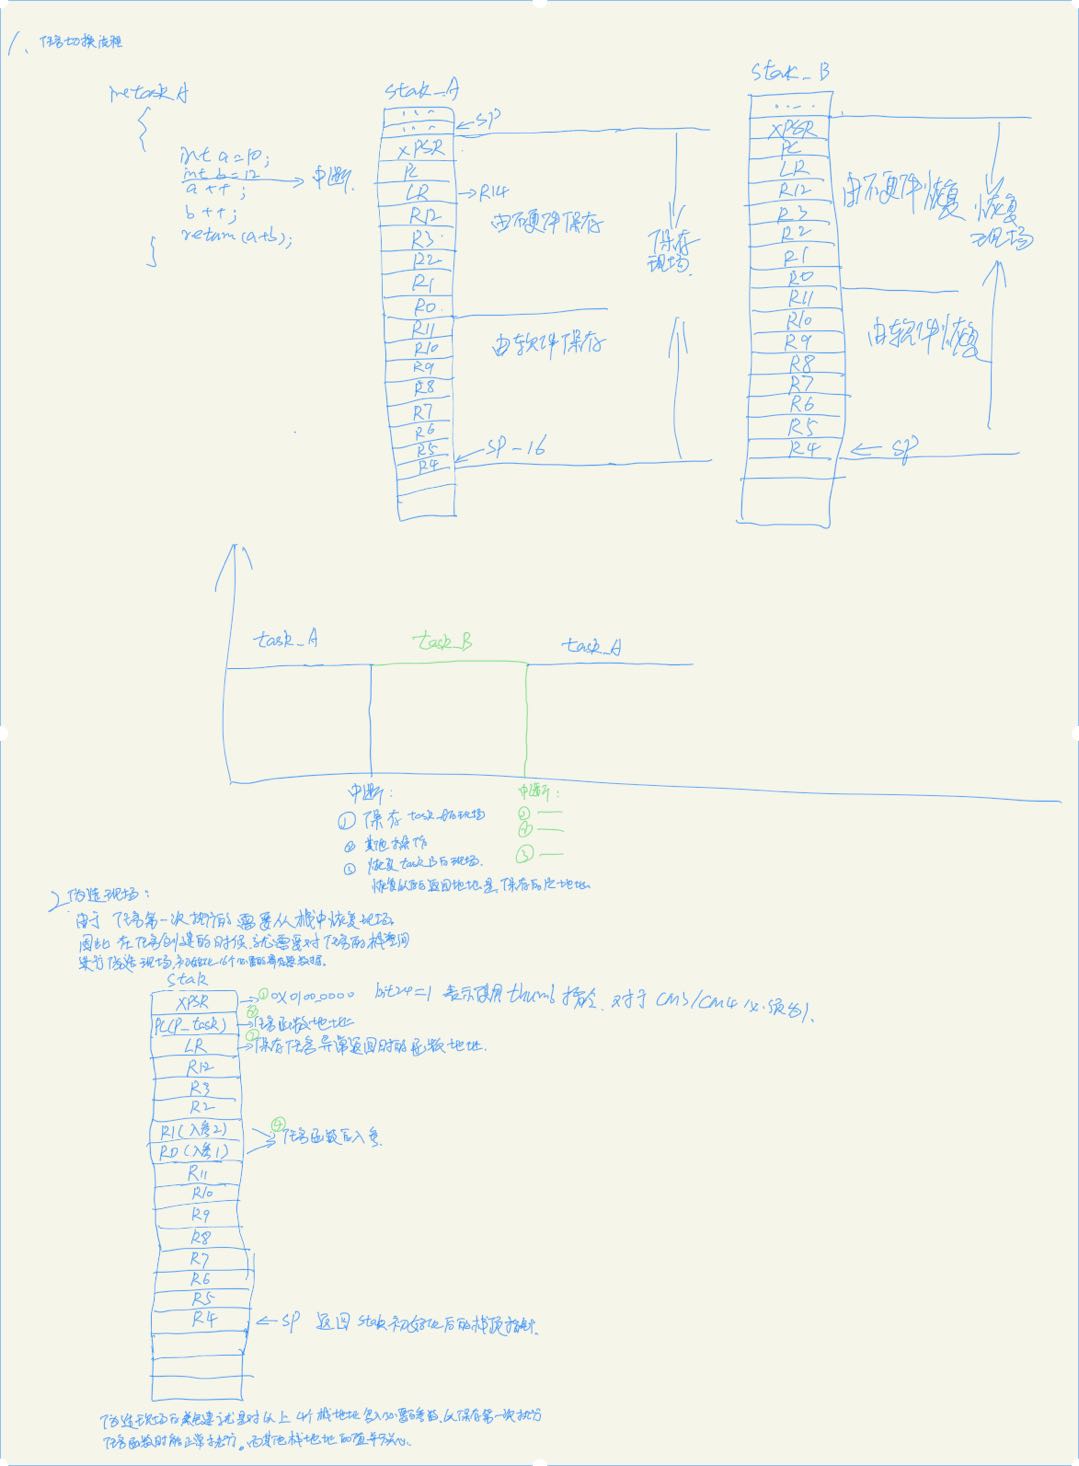 1、任务切换流程
int task_A
{
int a=10;
int b=12
a++;
b++;
return(a+b);
}
→中断.
stak_A
...
...
←SP
XPSR
PC
LR
→R14
R12
R3
R2
R1
R0
R11
R10
R9
R8
R7
R6
R5
R4
←SP-16
由硬件保存
由软件保存
保存
现场.
stak_B
....
XPSR
PC
LR
R12
R3
R2
R1
R0
R11
R10
R9
R8
R7
R6
R5
R4
←SP
由硬件恢复
由软件恢复
恢复
现场
task_A
task_B
task_A
中断:
① 保存task_A的现场
② 其他操作
③ 恢复task_B的现场.
恢复以后返回地址是,保存的PC地址
中断:
①—
②—
③—
2伪造现场:
由于任务第一次执行的需要从栈中恢复现场.
因此在任务创建的时候,就需要对任务的栈空间
来伪造现场,初始化16个必需的寄存器数据.
stak
XPSR
→①0X0100_0000 bit24=1 表示使用thumb指令,对于CM3/CM4必须为1.
PC(P_task)
→任务函数地址
LR
→保存任务异常返回时的函数地址.
R12
R3
R2
R1(入参2)
R0(入参1)
④
任务函数的入参.
R11
R10
R9
R8
R7
R6
R5
R4
←SP 返回stak初始化后的栈顶指针.
伪造现场的就是对以上4个栈地址写入必需的参数,以保存第一次执行
任务函数时能正常运行。而其他栈地址的值并不关心.